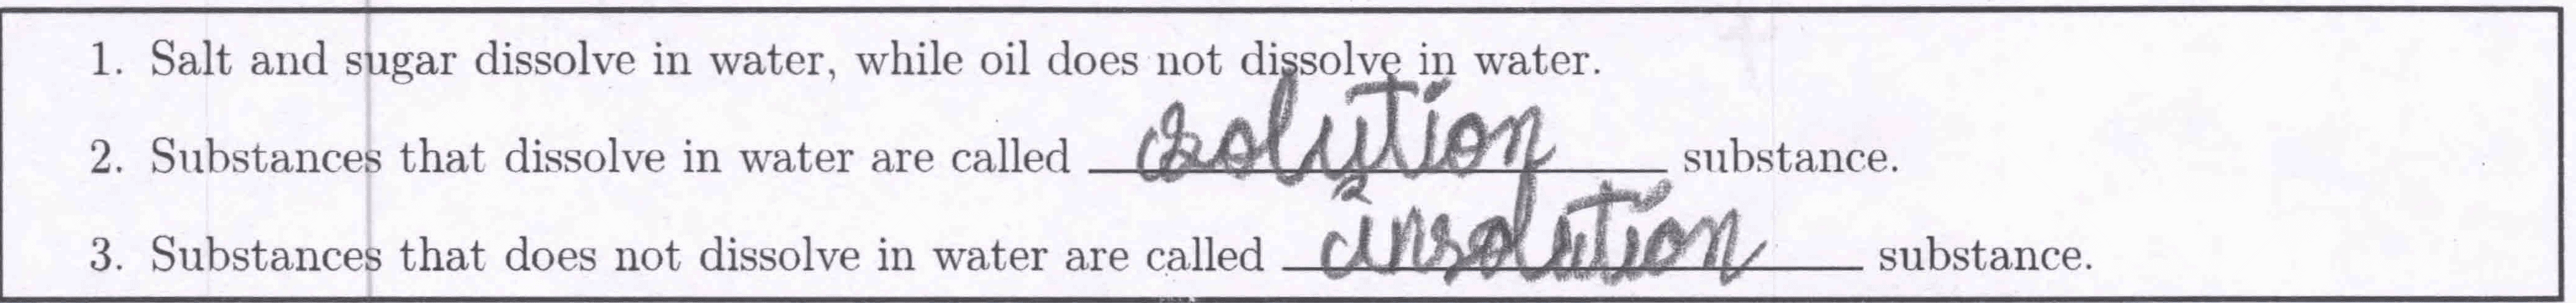 1. Salt and sugar dissolve in water, while oil does not dissolve in water.
2. Substances that dissolve in water are called solution substance.
3. Substances that does not dissolve in water are called insolution substance.